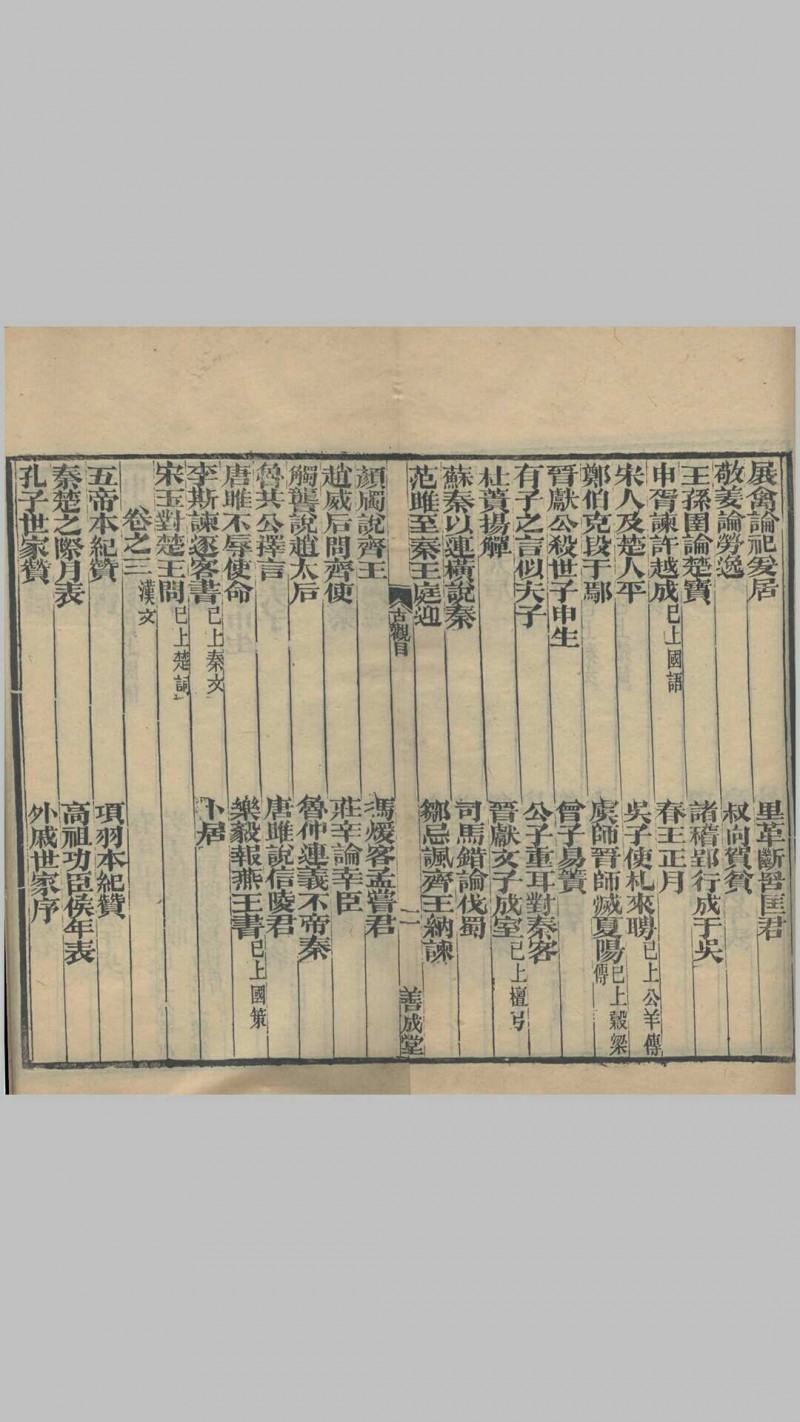 展禽論祀爰居　里革斷罟匡君
敬姜論勞逸　叔向賀貧
王孫圉論楚寶　諸稽郢行成于吳
申胥諫許越成已上國語　春王正月
宋人及楚人平　吳子使札來聘已上公羊傳
鄭伯克段于鄢　虞師晉師滅夏陽已上穀梁傳
晉獻公殺世子申生　曾子易簀
有子之言似夫子　公子重耳對秦客
杜蕢揚觶　晉獻文子成室已上檀弓
蘇秦以連橫說秦　司馬錯論伐蜀
范雎至秦王庭迎　鄒忌諷齊王納諫
古觀目　二　善成堂
顏斶說齊王　馮煖客孟嘗君
趙威后問齊使　莊辛論幸臣
觸讋說趙太后　魯仲連義不帝秦
魯共公擇言　唐雎說信陵君
唐雎不辱使命　樂毅報燕王書已上國策
李斯諫逐客書已上秦文　卜居
宋玉對楚王問已上楚詞
卷之三漢文
五帝本紀贊　項羽本紀贊
秦楚之際月表　高祖功臣侯年表
孔子世家贊　外戚世家序